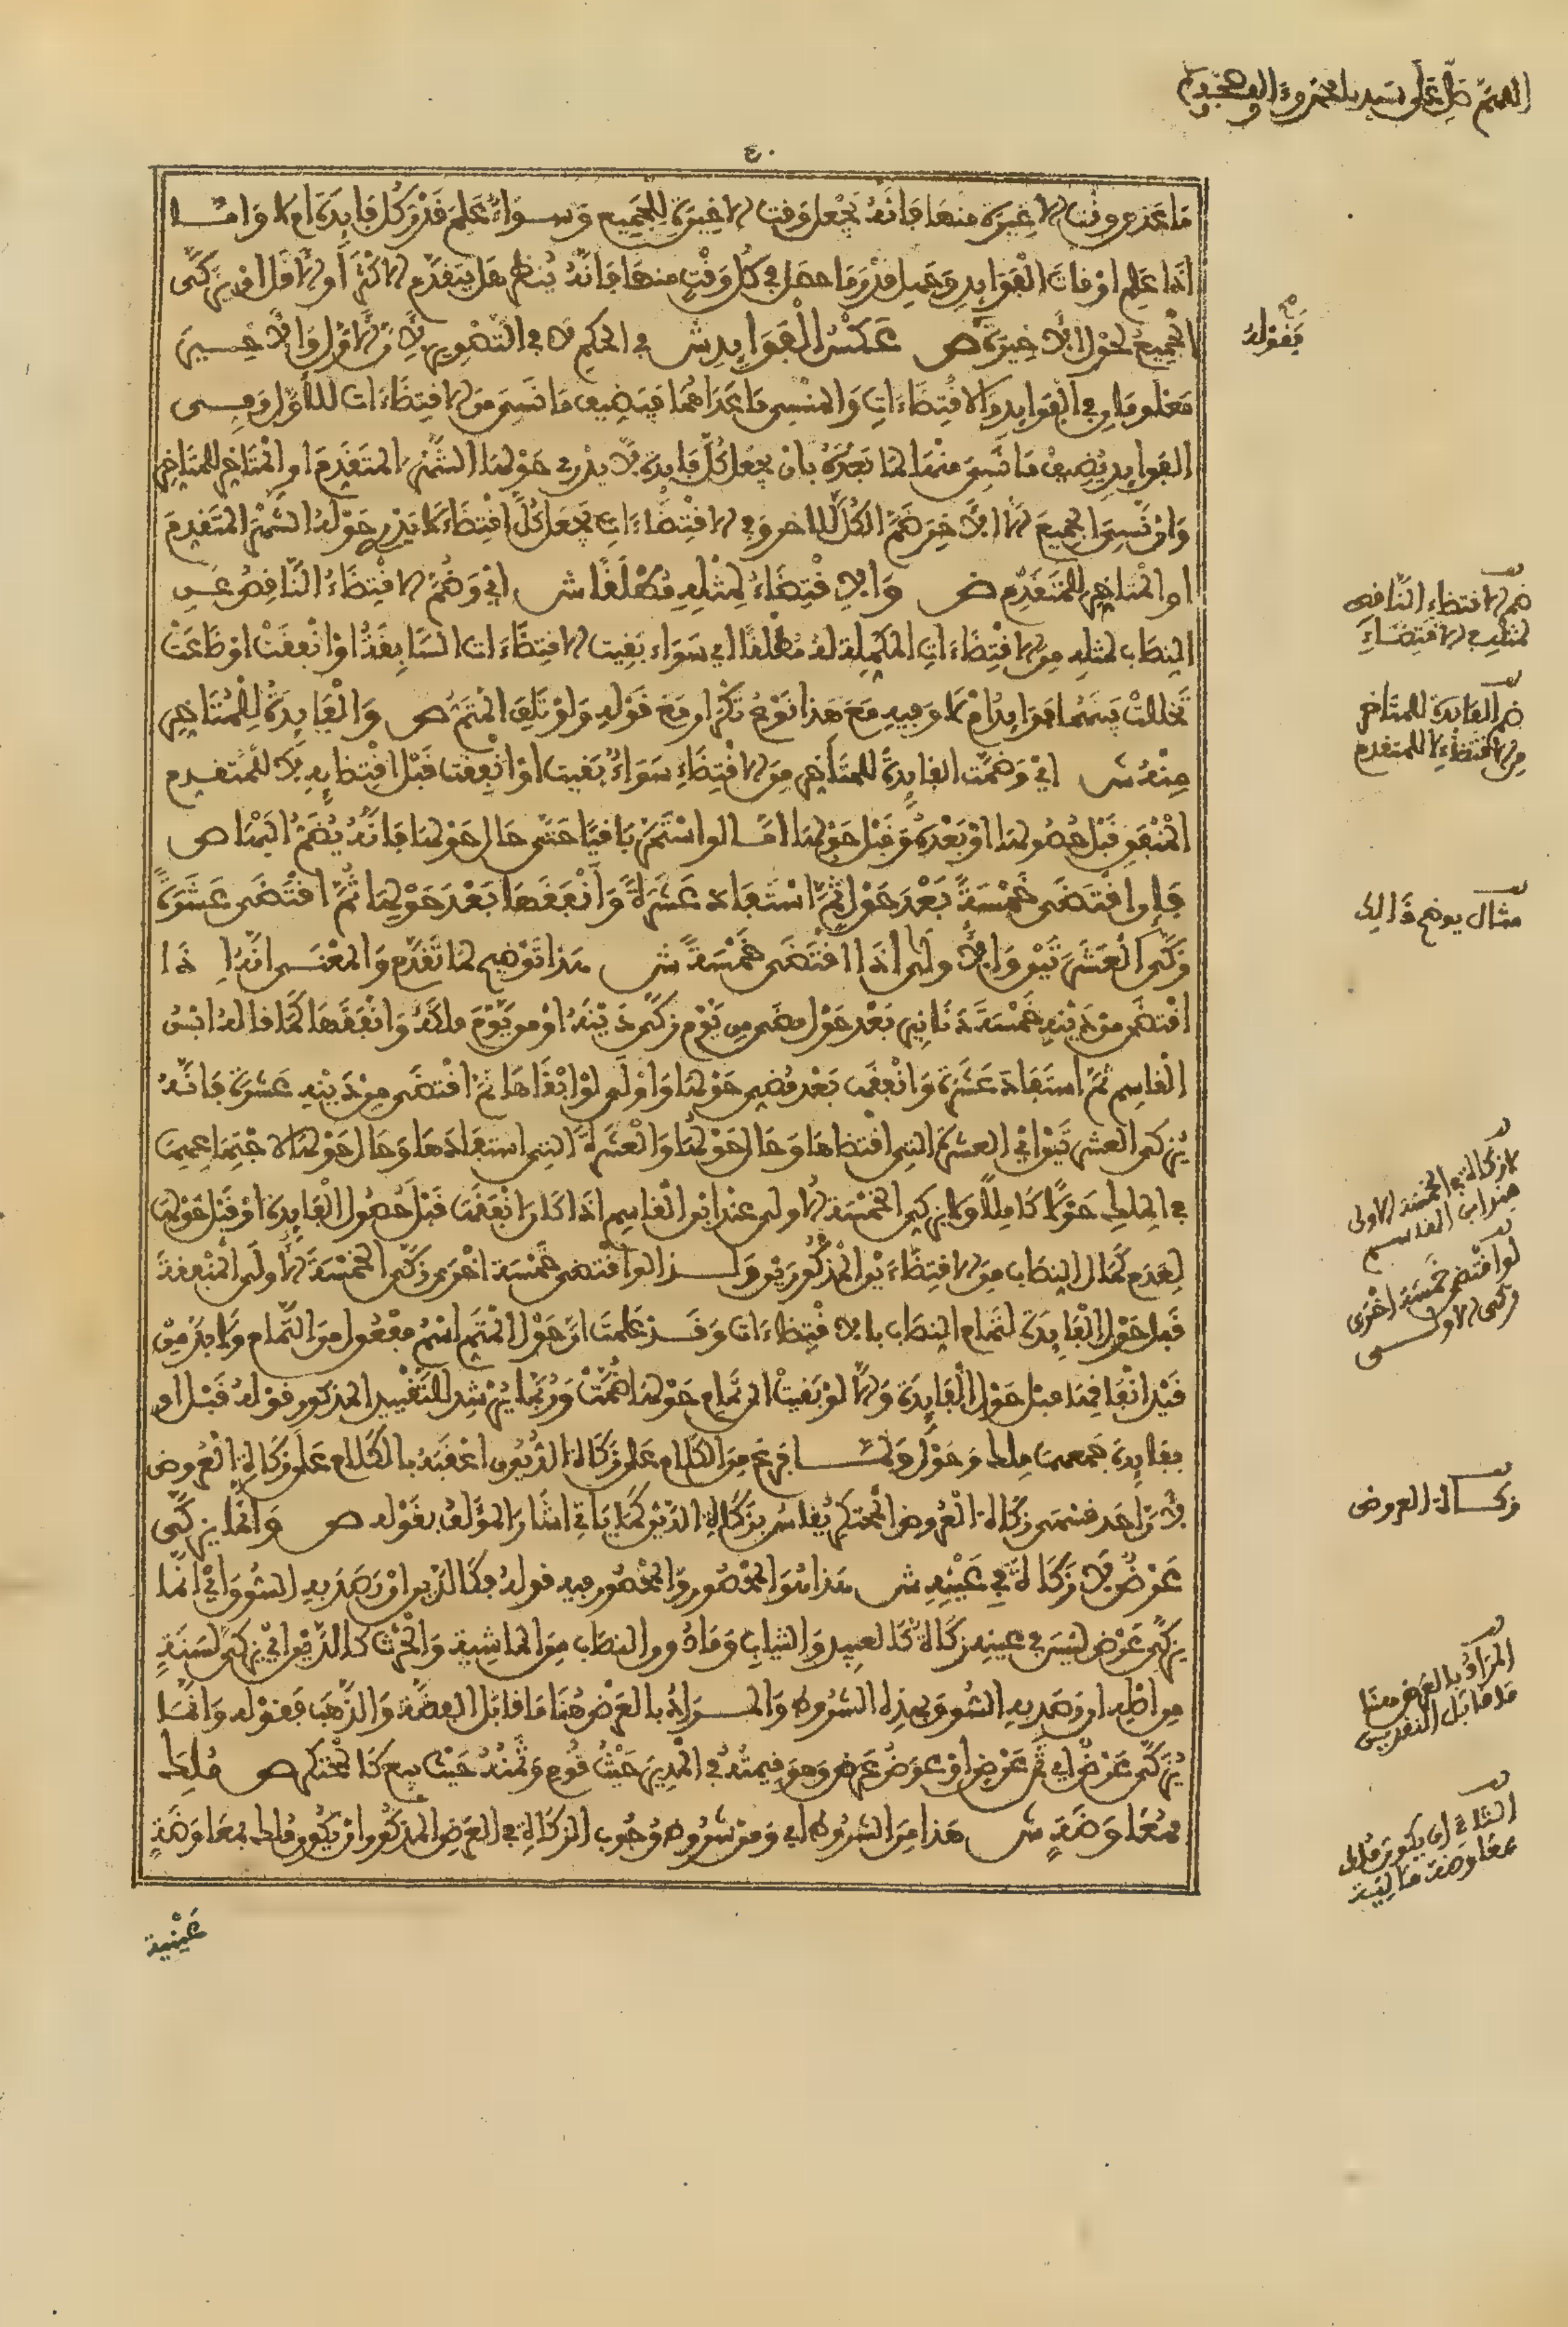 اللهم صل على سيدنا محمد وءاله وصحبه
٤٠
ما عدى وقت الاخيرة منها فانه يجعل وقت الاخيرة للجميع وسواء علم قدر كل فايدة ام لا واما
اذا علم اوقات الفوايد وجهل قدر ما حصل في كل وقت منها فانه ينظر هل يتقدم الاكثر أو الاقل او يزكى
الجميع لحول الاخيرة ص عكس الفوايد ش في الحكم لا في التصوير لان الاول والاخير
معلومان في الفوايد والاقتضاءات والمنسي ما عداهما فيضيف ما نسي من الاقتضاءات للاول وفي
الفوايد يضيف ما نسي منها لما بعده بان يجعل كل فايدة لا يدرى حولها الشهر المتقدم او المتاخر للمتاخر
وان نسي الجميع الا الاخر ضم الكل للاخر وفي الاقتضاءات يجعل كل اقتضاء لا يدرى حوله الشهر المتقدم
او المتاخر للمتقدم ص والاقتضاء لمثله مطلقا ش اي وضم الاقتضاء الناقص عن
النصاب لمثله من الاقتضاءات المكملة له مطلقا اي سواء بقيت الاقتضاءات السابقة او انفقت او ضاعت
تخللت بينهما فوايد ام لا وفيه مع هذا نوع تكرار مع قوله ولو تلف المتم ص والفايدة للمتاخر
منه ش اي وضمت الفايدة للمتاخر من الاقتضاء سواء بقيت او انفقت قبل اقتضايه لا للمتقدم
المنفق قبل حصولها او بعده وقبل حولها اما لو استمر باقيا حتى حال حولها فانه يضم اليها ص
فان اقتضى خمسة بعد حول ثم استفاد عشرة وانفقها بعد حولها ثم اقتضى عشرة
زكى العشرتين والاولى اذا اقتضى خمسة ش هذا توضيح لما تقدم والمعنى انه اذا
اقتضى من دينه خمسة دنانير بعد حول مضى من يوم زكى دينه او من يوم ملكه وانفقها كما قاله ابن
القاسم ثم استفاد عشرة وانفقت بعد مضي حولها واولى لو ابقاها ثم اقتضى من دينه عشرة فانه
يزكى العشرتين اي العشرة التي اقتضاها وحال حولها والعشرة التي استفادها وحال حولها لاجتماعهما
في الملك حولا كاملا ولا يزكى الخمسة الاولى عند ابن القاسم اذا كان انفقت قبل حصول الفايدة او قبل حولها
لعدم كمال النصاب من الاقتضاءين المذكورين ولذا لو اقتضى خمسة اخرى زكى الخمسة الاولى المنفقة
قبل حول الفايدة لتمام النصاب بالاقتضاءات وقد علمت ان حول المتم اسم مفعول من التمام ولا بد من
قيد انفاقها قبل حول الفايدة والا لو بقيت الى تمام حولها ضمت وربما يرشد للتقييد المذكور قوله قبل او
بفايدة جمعهما ملك وحول ولما فرغ من الكلام على زكاة الديون اعقبه بالكلام على زكاة العروض
لان احد قسمي زكاة العروض المحتكر يقاس بزكاة الدين كما ياتي اشار المؤلف بقوله ص وانما يزكى
عرض لا زكاة في عينه ش هذا هو المحصور والمحصور فيه قوله فكالدين ان رصد به السوق اي انما
يزكى عرض ليس في عينه زكاة كالعبيد والثياب وما دون النصاب من الماشية والحرث كالدين اي يزكى لسنة
من اصله ان رصد به السوق بهذه الشروط والمراد بالعرض هنا ما قابل الفضة والذهب فقوله وانما
يزكى عرض اي ثمن عرض او عوض عرض وهو قيمته في المدير حيث قوم وثمنه حيث بيع كالمحتكر ص ملك
بمعاوضة ش هذا من الشروط اي ومن شروط وجوب الزكاة في العرض المذكور ان يكون ملك بمعاوضة
عينية
صح
بقوله
ضم الاقتضاء الناقص
لمثله في الاقتضاء
ضم الفايدة للمتاخر
من الاقتضاء لا للمتقدم
مثال يوضح ذالك
لا زكاة في الخمسة الاولى
عند ابن القاسم
لو اقتضى خمسة اخرى
زكى الاولى
زكاة العروض
المراد بالعرض هنا
ما قابل النقدين
الثاني ان يكون ملك
بمعاوضة مالية